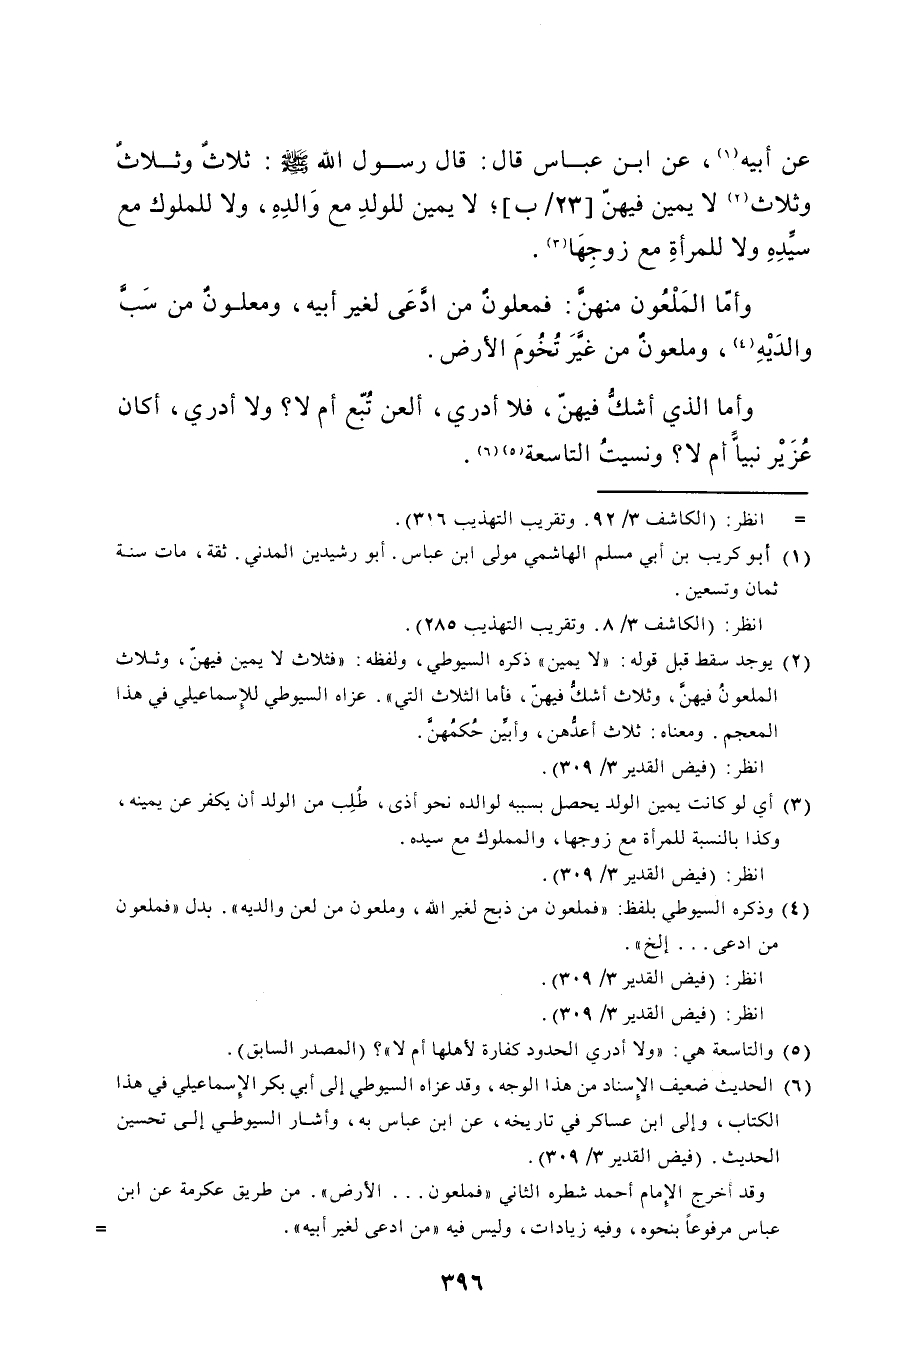 عن أبيه(١)، عن ابـن عبـاس قال: قال رسـول الله ﷺ : ثلاثٌ وثـلاثٌ
وثلاث(٢) لا يمين فيهنّ [٢٣/ ب]؛ لا يمين للولدِ مع وَالدِهِ، ولا للملوك مع
سيِّدِهِ ولا للمرأةِ مع زوجِهَا(٣).
وأمّا المَلْعُون منهنَّ: فمعلونٌ من ادَّعَى لغير أبيه، ومعلـونٌ من سَبَّ
والدَيْهِ(٤)، وملعونٌ من غيَّرَ تُخُومَ الأرض.
وأما الذي أشكُّ فيهنّ، فلا أدري، ألعن تُبّع أم لا؟ ولا أدري، أكان
عُزَيْر نبياً أم لا؟ ونسيتُ التاسعة(٥)(٦).
= انظر: (الكاشف ٣/ ٩٢. وتقريب التهذيب ٣١٦).
(١) أبو كريب بن أبي مسلم الهاشمي مولى ابن عباس. أبو رشيدين المدني. ثقة، مات سنة
ثمان وتسعين.
انظر: (الكاشف ٣/ ٨. وتقريب التهذيب ٢٨٥).
(٢) يوجد سقط قبل قوله: «لا يمين» ذكره السيوطي، ولفظه: «فثلاث لا يمين فيهنّ، وثـلاث
الملعونُ فيهنَّ، وثلاث أشكُّ فيهنّ، فأما الثلاث التي». عزاه السيوطي للإسماعيلي في هذا
المعجم. ومعناه: ثلاث أعدُّهن، وأبيِّن حُكمُهنَّ.
انظر: (فيض القدير ٣/ ٣٠٩).
(٣) أي لو كانت يمين الولد يحصل بسببه لوالده نحو أذى، طُلِب من الولد أن يكفر عن يمينه،
وكذا بالنسبة للمرأة مع زوجها، والمملوك مع سيده.
انظر: (فيض القدير ٣/ ٣٠٩).
(٤) وذكره السيوطي بلفظ: «فملعون من ذبح لغير الله، وملعون من لعن والديه». بدل «فملعون
من ادعى... إلخ».
انظر: (فيض القدير ٣/ ٣٠٩).
انظر: (فيض القدير ٣/ ٣٠٩).
(٥) والتاسعة هي: «ولا أدري الحدود كفارة لأهلها أم لا»؟ (المصدر السابق).
(٦) الحديث ضعيف الإسناد من هذا الوجه، وقد عزاه السيوطي إلى أبي بكر الإسماعيلي في هذا
الكتاب، وإلى ابن عساكر في تاريخه، عن ابن عباس به، وأشـار السيوطـي إلـى تحسين
الحديث. (فيض القدير ٣/ ٣٠٩).
وقد أخرج الإمام أحمد شطره الثاني «فملعون... الأرض». من طريق عكرمة عن ابن
عباس مرفوعاً بنحوه، وفيه زيادات، وليس فيه «من ادعى لغير أبيه». =
٣٩٦